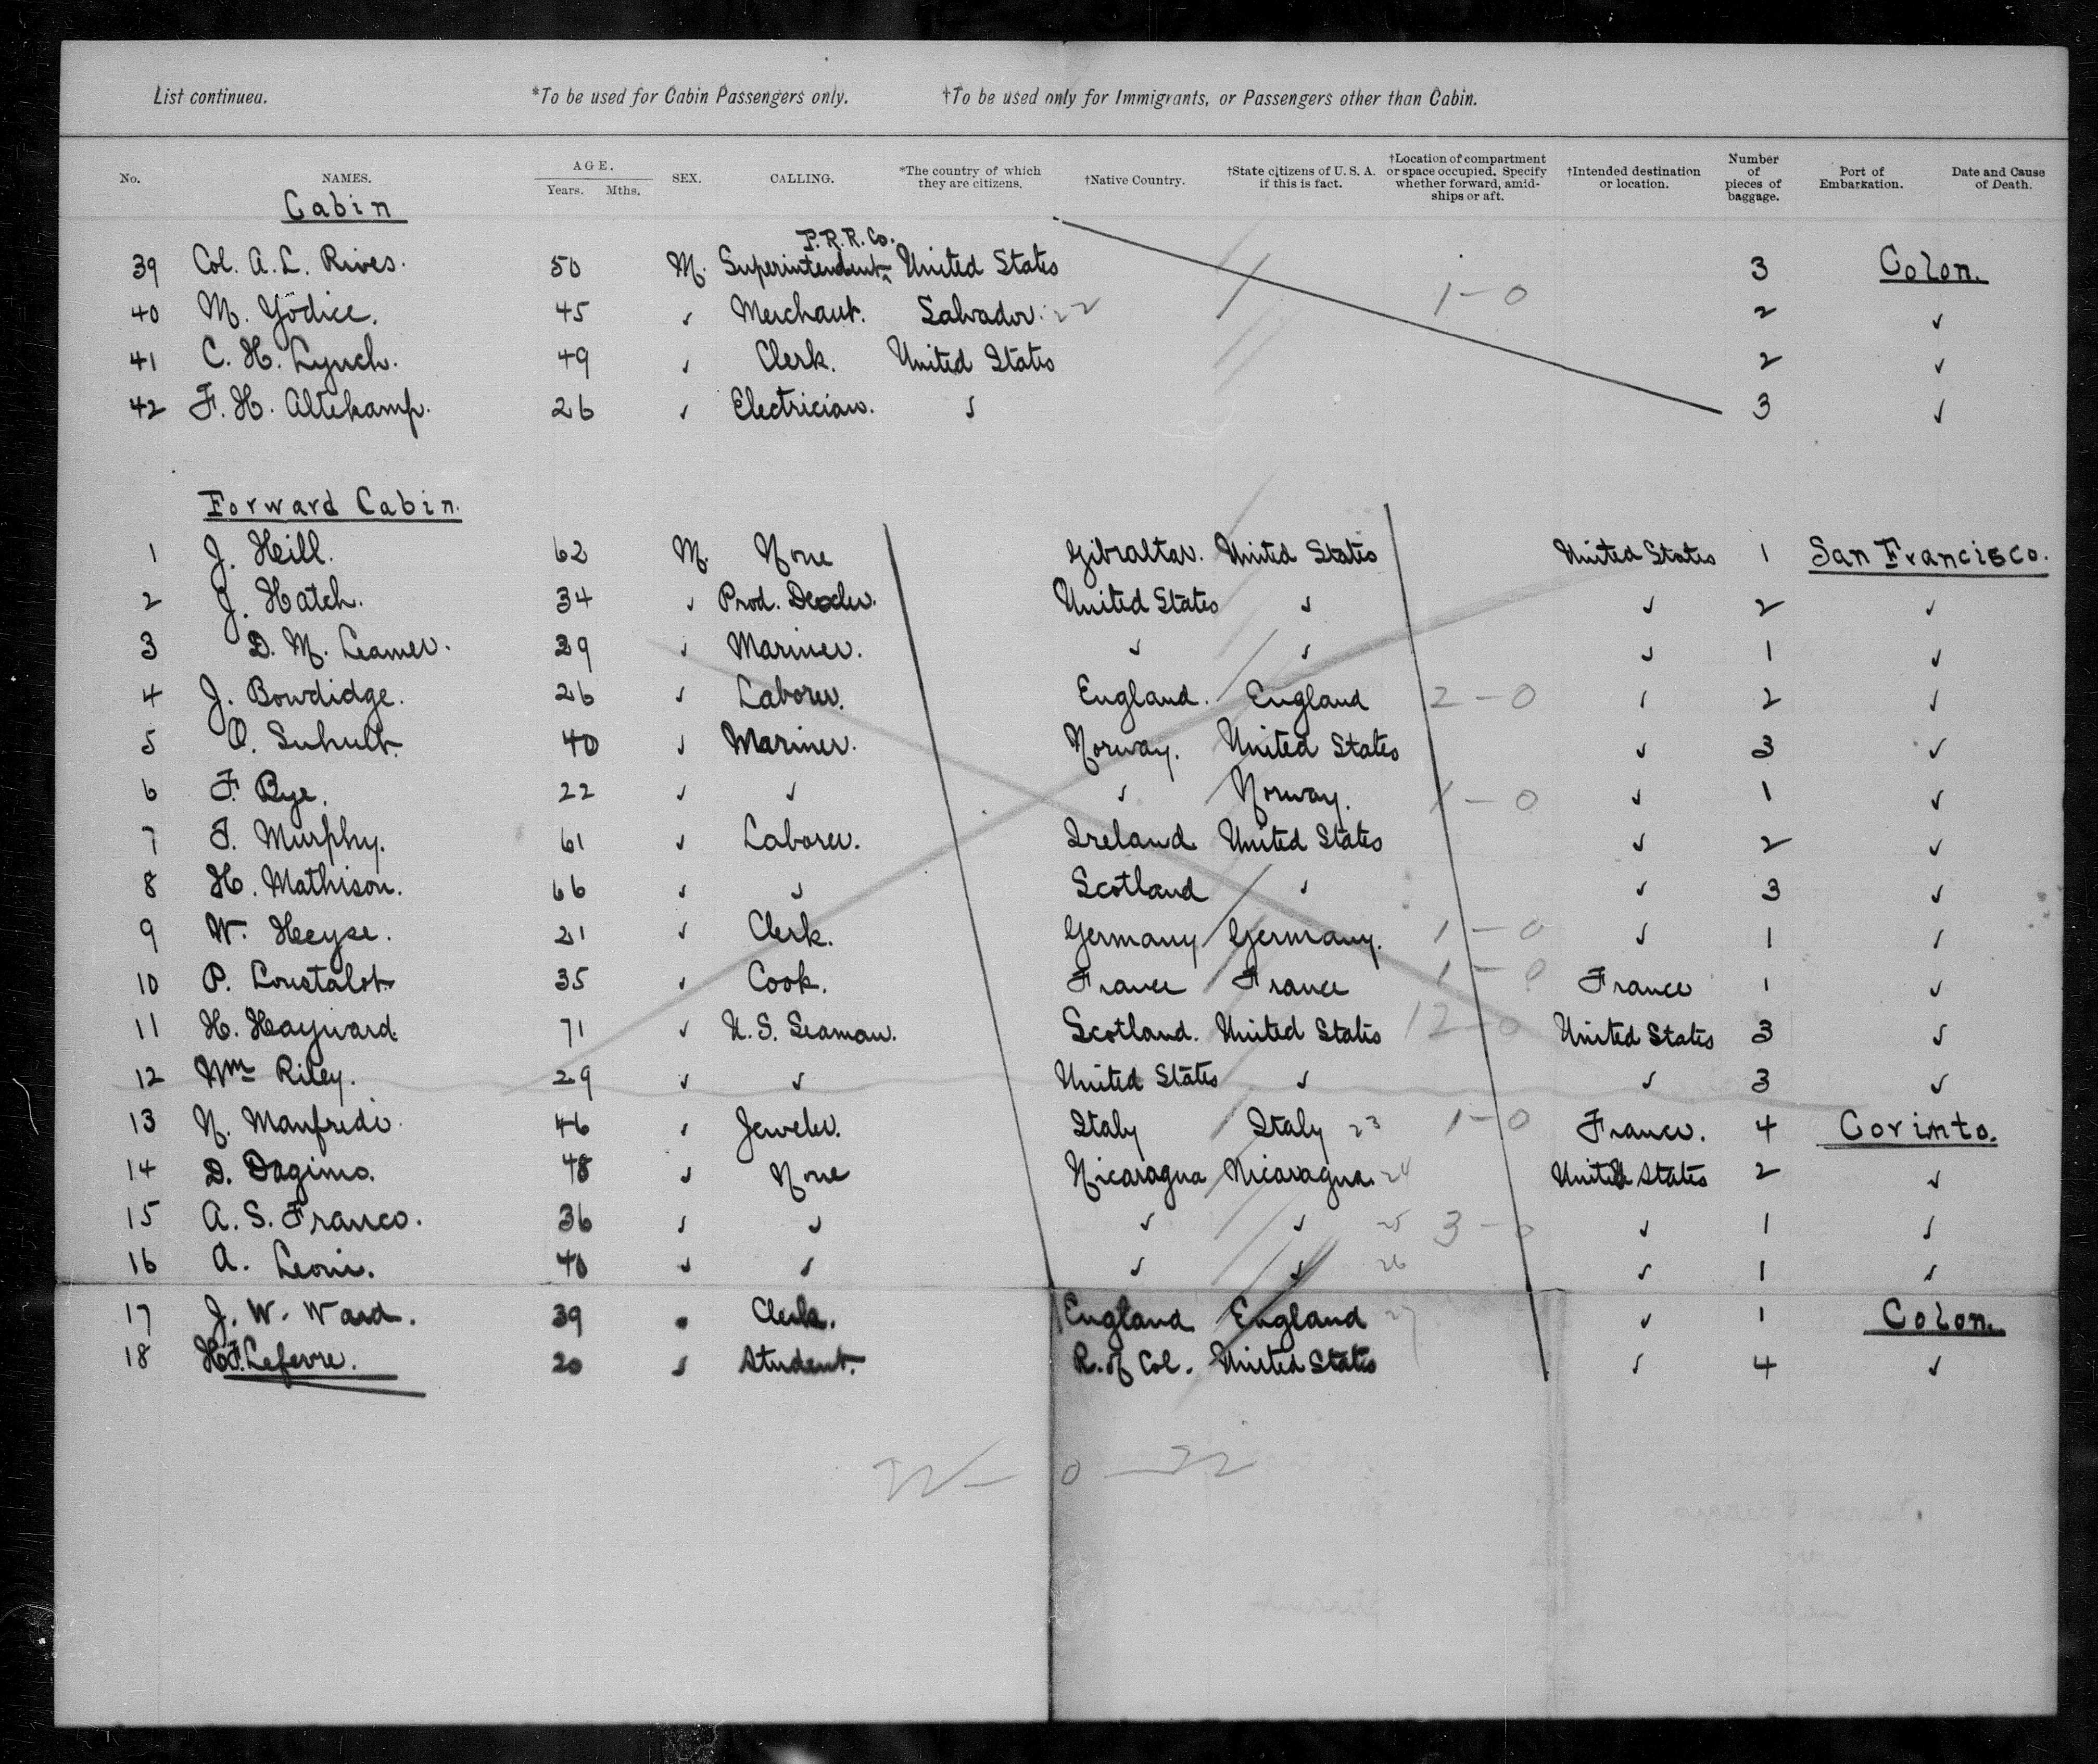 List continued. *To be used for Cabin Passengers only. †To be used only for Immigrants, or Passengers other than Cabin.
No. NAMES. AGE. Years. Mths. SEX. CALLING. *The country of which they are citizens. †Native Country. †State citizens of U. S. A. if this is fact. †Location of compartment or space occupied. Specify whether forward, amidships or aft. †Intended destination or location. Number of pieces of baggage. Port of Embarkation. Date and Cause of Death.
Cabin
P.R.R.Co.
39 Col. A. L. Rives. 50 M. Superintendent ^ United States 3 Colon.
40 M. Yodice. 45 ✓ Merchant. Salvador. 22 1 – 0 2 ✓
41 C. H. Lynch. 49 ✓ Clerk. United States 2 ✓
42 F. H. Altekamp. 26 ✓ Electrician. ✓ 3 ✓
Forward Cabin.
1 J. Heill. 62 M. None Gibraltar. United States United States 1 San Francisco.
2 J. Hatch. 34 ✓ Prod. Dealer. United States ✓ ✓ 2 ✓
3 D. M. Leamer. 39 ✓ Mariner. ✓ ✓ ✓ 1 ✓
4 J. Bowdidge. 26 ✓ Laborer. England. England 2 – 0 ✓ 2 ✓
5 O. Suhult. 40 ✓ Mariner. Norway. United States ✓ 3 ✓
6 F. Bye. 22 ✓ ✓ ✓ Norway. 1 – 0 ✓ 1 ✓
7 T. Murphy. 61 ✓ Laborer. Ireland. United States ✓ 2 ✓
8 H. Mathison. 66 ✓ ✓ Scotland ✓ ✓ 3 ✓
9 W. Heyse. 21 ✓ Clerk. Germany Germany. 1 – 0 ✓ 1 ✓
10 P. Loustalot. 35 ✓ Cook. France France 1 – 0 France 1 ✓
11 H. Hayward. 71 ✓ U. S. Seaman. Scotland. United States 12 – 0 United States 3 ✓
12 Wm Riley. 29 ✓ ✓ United States ✓ ✓ 3 ✓
13 N. Manfredi. 46 ✓ Jeweler. Italy Italy 23 1 – 0 France. 4 Corinto.
14 D. Dagimo. 48 ✓ None Nicaragua Nicaragua. 24 United States 2 ✓
15 A. S. Franco. 36 ✓ ✓ ✓ ✓ 25 3 – 0 ✓ 1 ✓
16 A. Leoni. 40 ✓ ✓ ✓ ✓ 26 ✓ 1 ✓
17 J. W. Ward. 39 ✓ Clerk. England England 27 ✓ 1 Colon.
18 H. F. Lefevre. 20 ✓ Student. R. of Col. United States ✓ 4 ✓
22 – 0 – 22